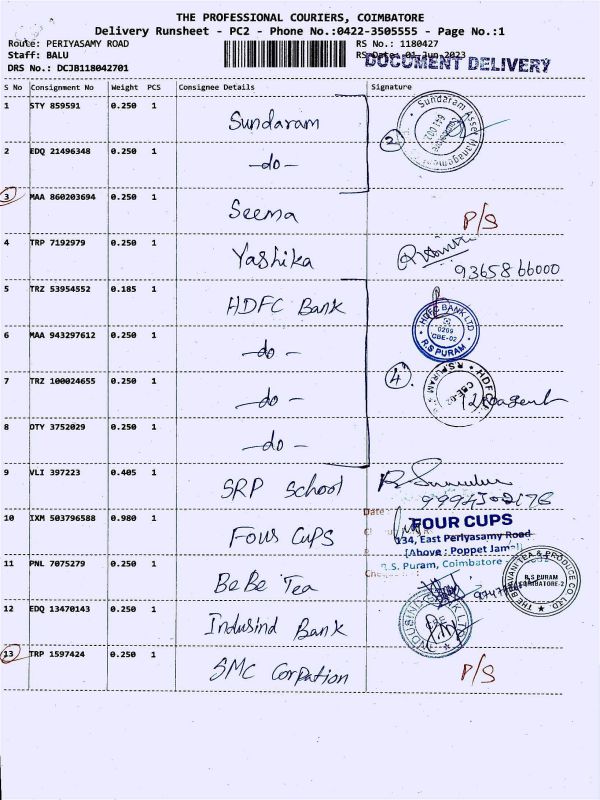 THE PROFESSIONAL COURIERS, COIMBATORE
Delivery Runsheet - PC2 - Phone No.:0422-3505555 - Page No.:1
Route: PERIYASAMY ROAD
RS No.: 1180427
Staff: BALU
RS Date: 01-Jun-2023
DOCUMENT DELIVERY
DRS No.: DCJB118042701
S No Consignment No Weight PCS Consignee Details Signature
1 STY 859591 0.250 1 Sundaram
Sundaram Asset Management
2
2 EDQ 21496348 0.250 1 -do-
3 MAA 860203694 0.250 1 Seema P/S
4 TRP 7192979 0.250 1 Yashika
9365866000
5 TRZ 53954552 0.185 1 HDFC Bank
HDFC BANK LTD
0269
CBE-02
R.S PURAM
6 MAA 943297612 0.250 1 -do-
7 TRZ 100024655 0.250 1 -do-
4
R.S.PURAM HDFC
CBE-02
8 OTY 3752029 0.250 1 -do-
9 VLI 397223 0.405 1 SRP School
10 IXM 503796588 0.980 1 Fous Cups
Date
FOUR CUPS
134, East Periyasamy Road
R.S. Puram, Coimbatore
11 PNL 7075279 0.250 1 BeBe Tea
TEA & PRODUCE CO. LTD.
R.S PURAM
COIMBATORE-2
12 EDQ 13470143 0.250 1 Indusind Bank
INDUSIND BANK LTD
13 TRP 1597424 0.250 1 SMC Corpation P/S